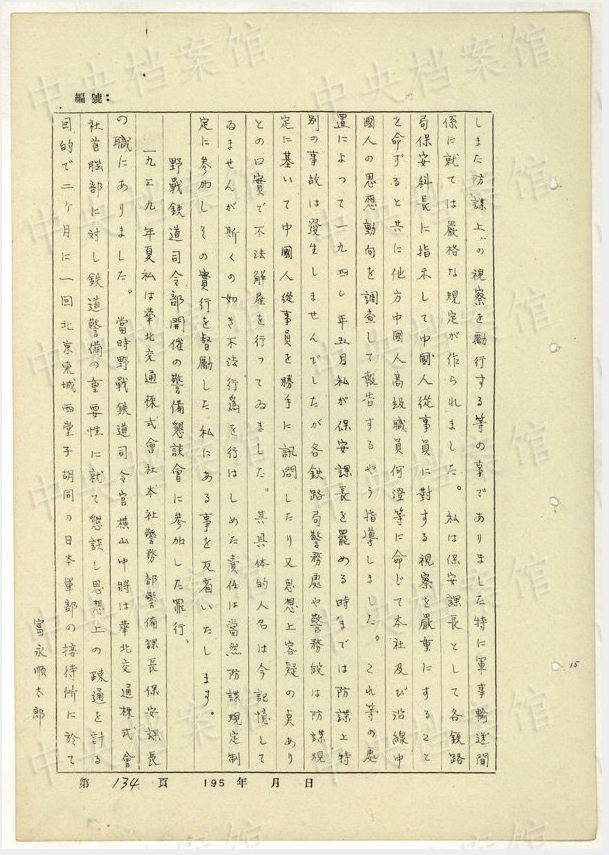 編號:
しまた防諜上の視察を勵行する等の事でありました特に軍事輸送関
係に就ては嚴格な規定が作られました。私は保安課長として各鉄路
局保安科長に指示して中國人從事員に対する視察を嚴重にすること
を命ずると共に他方中國人高級職員何澄等に命じて本社及び沿線中
國人の思想動向を調査して報告するやう指導しました。これ等の處
置によって一九四〇年五月私が保安課長を罷める時までは防諜上特
別の事故は發生しませんでしたが各鉄路局警務處や警務段は防諜規
定に基いて中國人從事員を勝手に訊問したり又思想上容疑の点あり
との口實で不法解雇を行ってゐました。其具体的人名は今記憶して
ゐませんが斯くの如き不法行為を行はしめた責任は当然防諜規定制
定に参加しその實行を督勵した私にある事を反省いたします。
野戰鉄道司令部開催の警備懇談會に参加した罪行、
一九三九年夏私は華北交通株式會社本社警務部警備課長保安課長
の職にありました。當時野戰鉄道司令官横山中將は華北交通株式會
社首脳部に対し鉄道警備の重要性に就て懇談し思想上の疎通を計る
目的で二ケ月に一回北京東城西堂子胡同の日本軍部の接待所に於て
富永順太郎
第 134 頁 195 年 月 日
15
中央档案馆